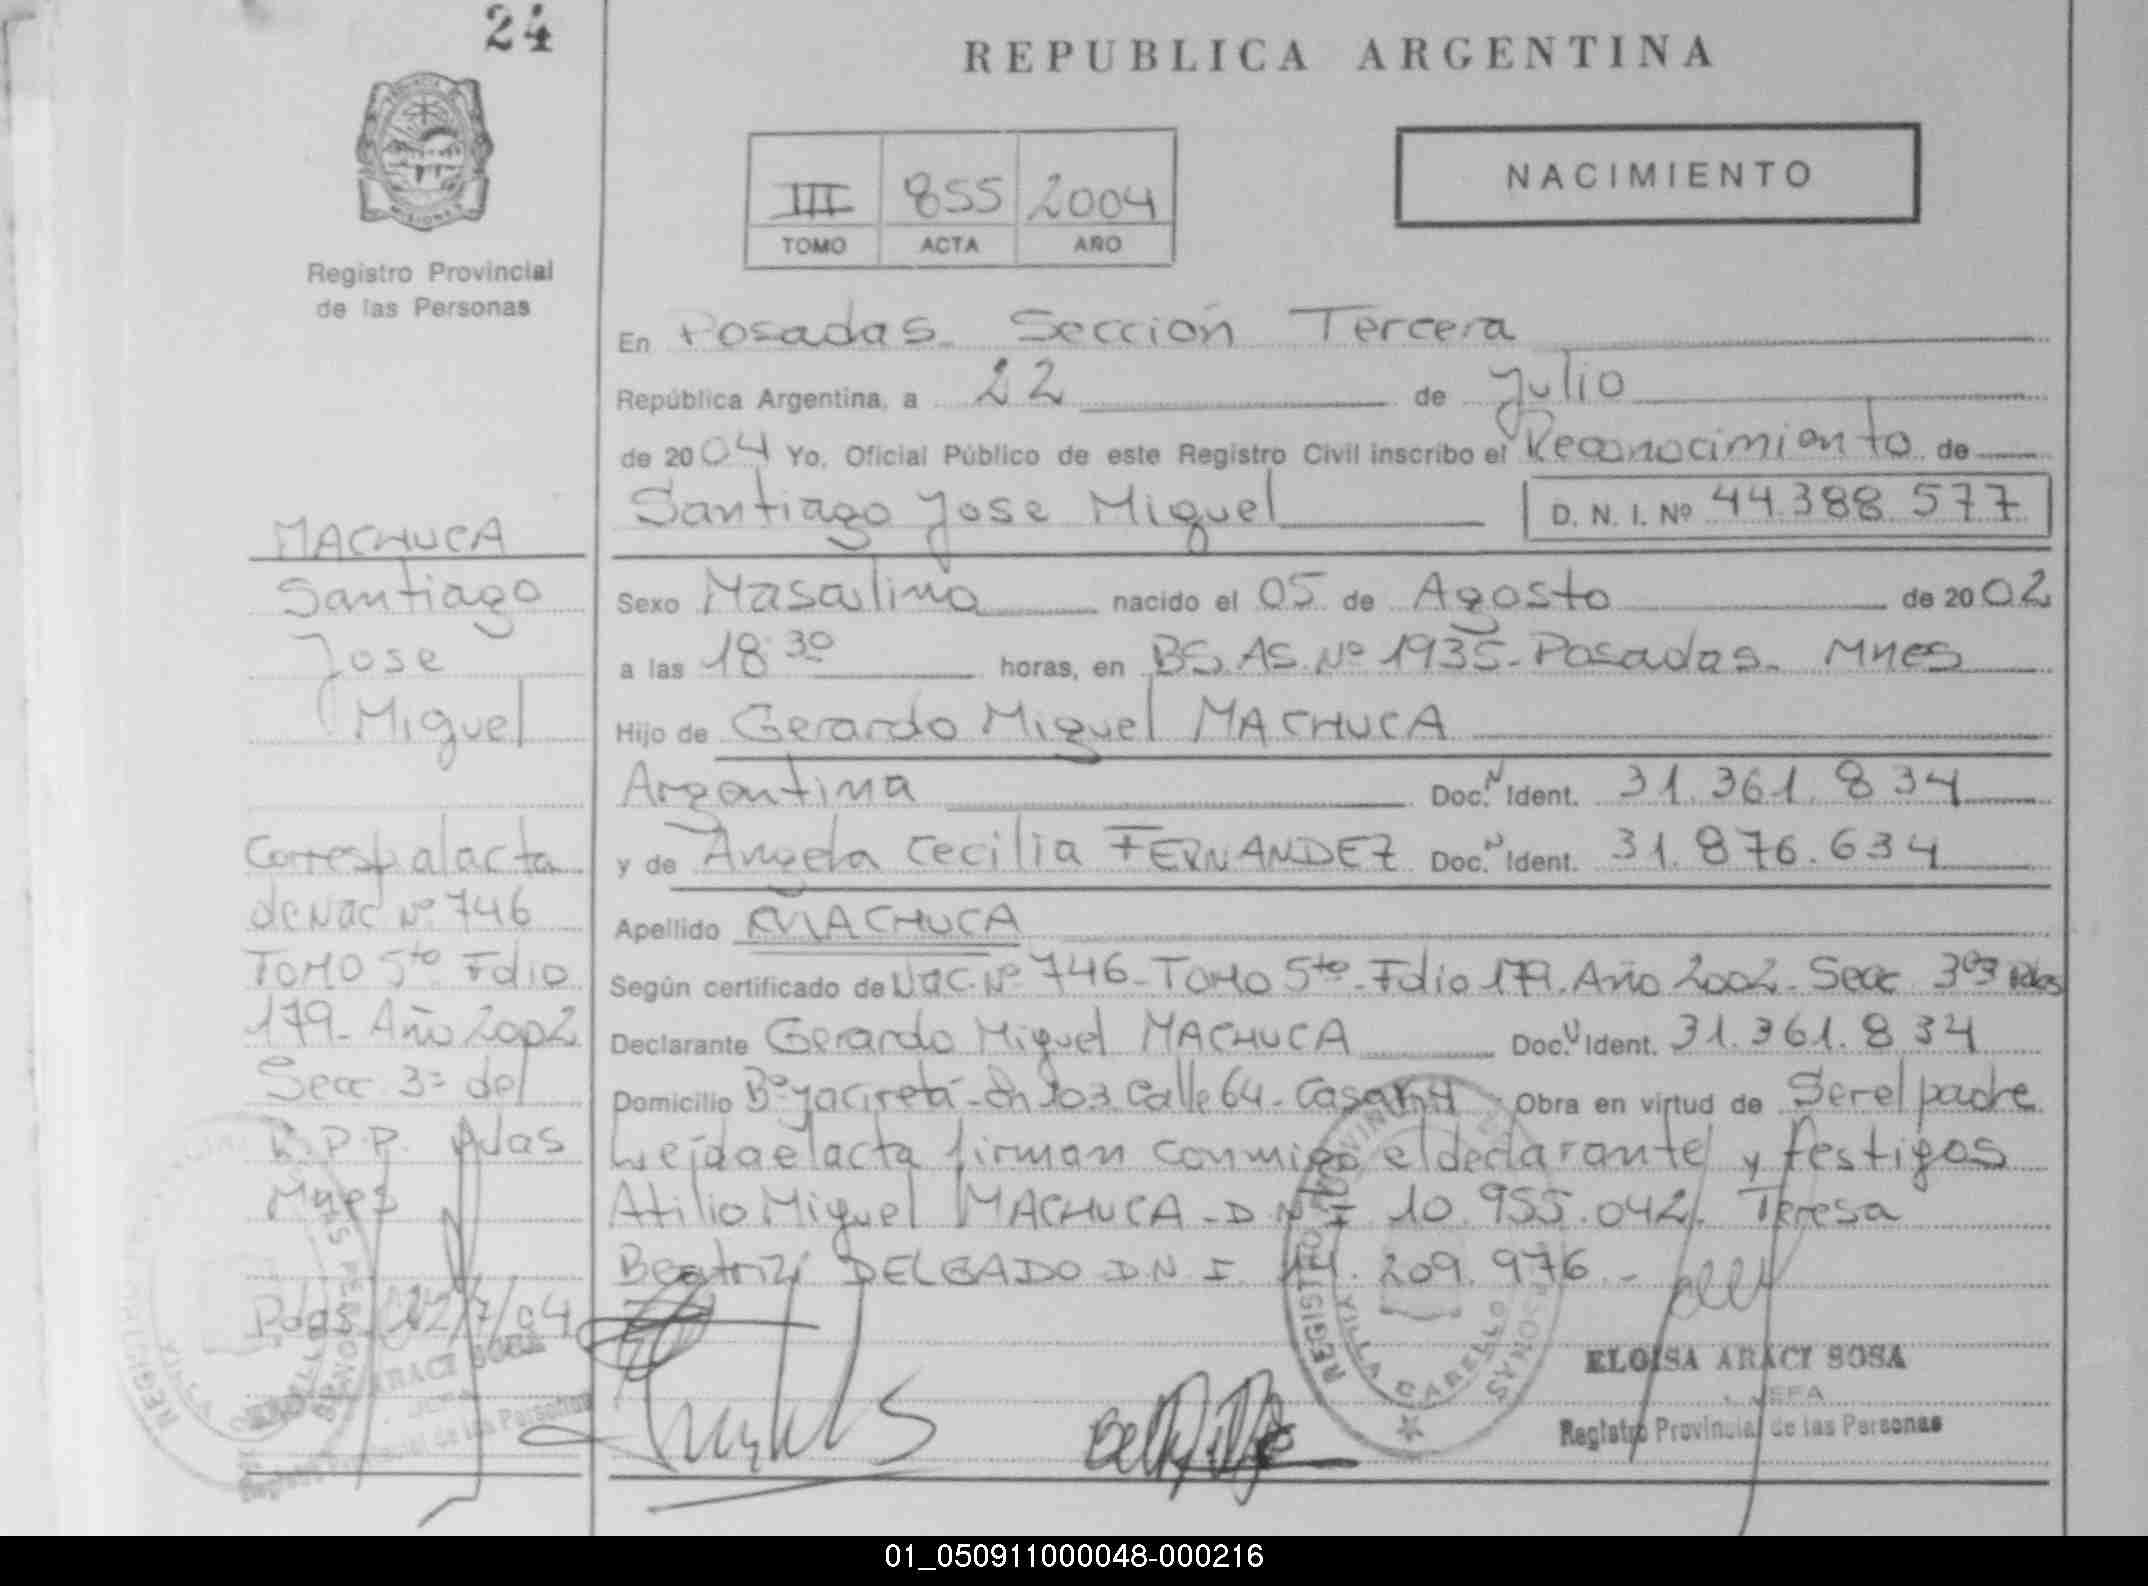 24
PROVINCIA DE
MISIONES
Registro Provincial
de las Personas
MACHUCA
Santiago
Jose
Miguel
Corresp. al acta
de Nac Nº 746
TOMO 5to Folio
179 - Año 2002
Secc 3ª del
R.P.P. Pdas
Mnes
Pdas 22/7/04
REPUBLICA ARGENTINA
III 855 2004
TOMO ACTA AÑO
NACIMIENTO
En Posadas Sección Tercera
República Argentina, a 22 de Julio
de 2004 Yo, Oficial Público de este Registro Civil inscribo el Reconocimiento de
Santiago Jose Miguel D. N. I. Nº 44.388.577
Sexo Masculino nacido el 05 de Agosto de 2002
a las 18:30 horas, en BS. AS. Nº 1935 - Posadas - Mnes
Hijo de Gerardo Miguel MACHUCA
Argentina Doc. N Ident. 31.361.834
y de Angela Cecilia FERNANDEZ Doc. N Ident. 31.876.634
Apellido MACHUCA
Según certificado de Nac. Nº 746 - TOMO 5to - Folio 179 - Año 2002 - Secc 3era Pdas
Declarante Gerardo Miguel MACHUCA Doc. N Ident. 31.361.834
Domicilio Bº Yacireta - Ch 103 Calle 64 - Casa Obra en virtud de Ser el padre
Leída el acta firman conmigo el declarante y testigos
Atilio Miguel MACHUCA - D.N.I 10.955.042. Teresa
Beatriz DELGADO D.N.I. 14.209.976 -
REGISTRO PROVINCIAL DE LAS PERSONAS
VILLA CABELLO
ELOISA ARACI SOSA
JEFA
Registro Provincial de las Personas
01_050911000048-000216